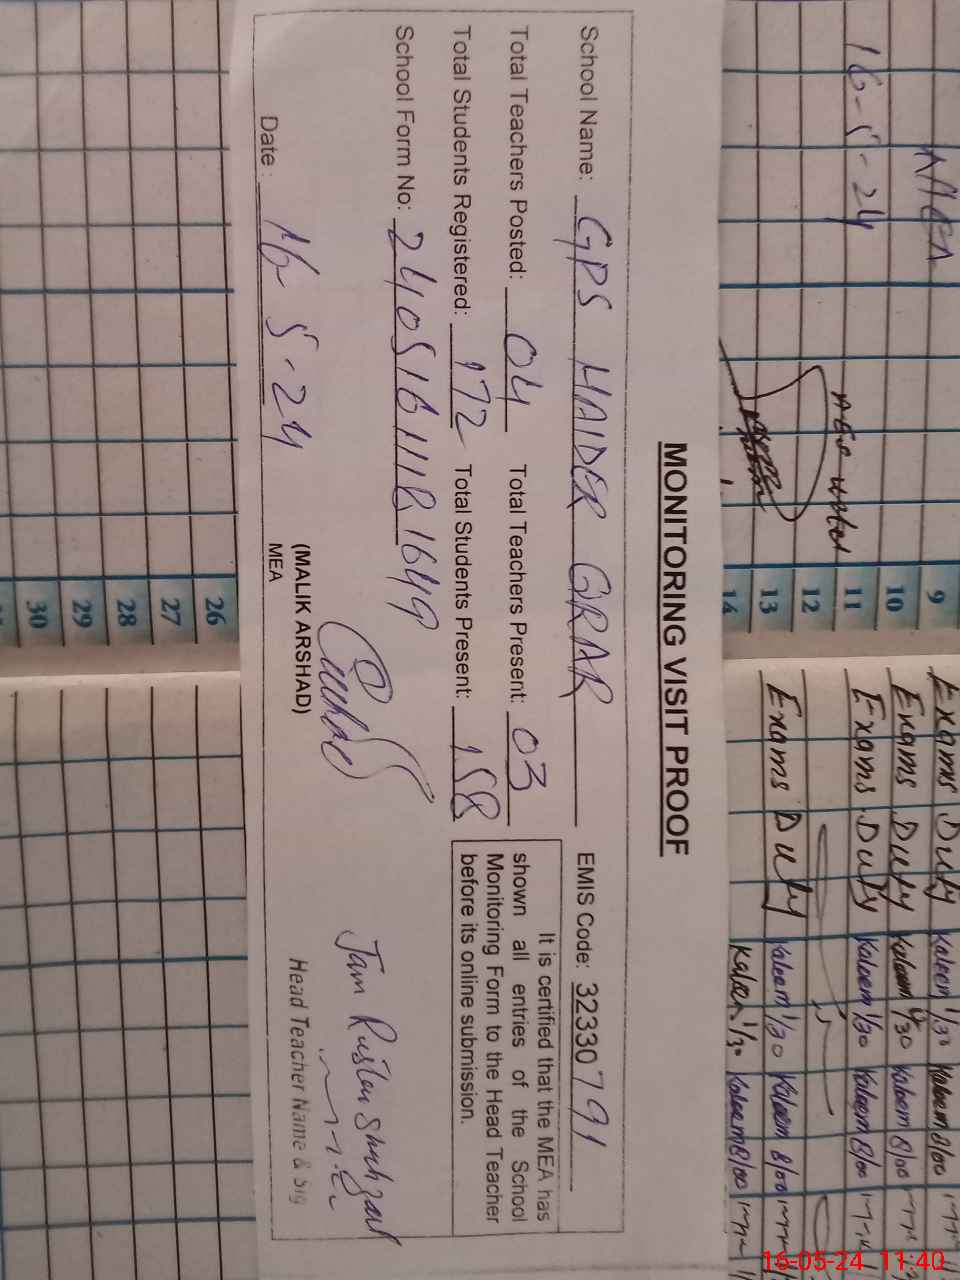 MONITORING VISIT PROOF
School Name: GPS HAIDER GRAR EMIS Code: 32330791
Total Teachers Posted: 04 Total Teachers Present: 03
Total Students Registered: 172 Total Students Present: 158
School Form No: 24051611181649
It is certified that the MEA has
shown all entries of the School
Monitoring Form to the Head Teacher
before its online submission.
Date: 16 5-24
(MALIK ARSHAD)
MEA
Jam Rustam Shahzad
Head Teacher Name & Sig
MEA
16-5-24
9 Exams Duty Kaleem 1/30 Kaleem 8/00
10 Exams Duty Kaleem 1/30 Kaleem 8/00
11 Exams Duty Kaleem 1/30 Kaleem 8/00
12
13 Exams Duty Kaleem 1/30 Kaleem 8/00
14 Kaleem 1/30 Kaleem 8/00
26
27
28
29
30
16-05-24 11:40